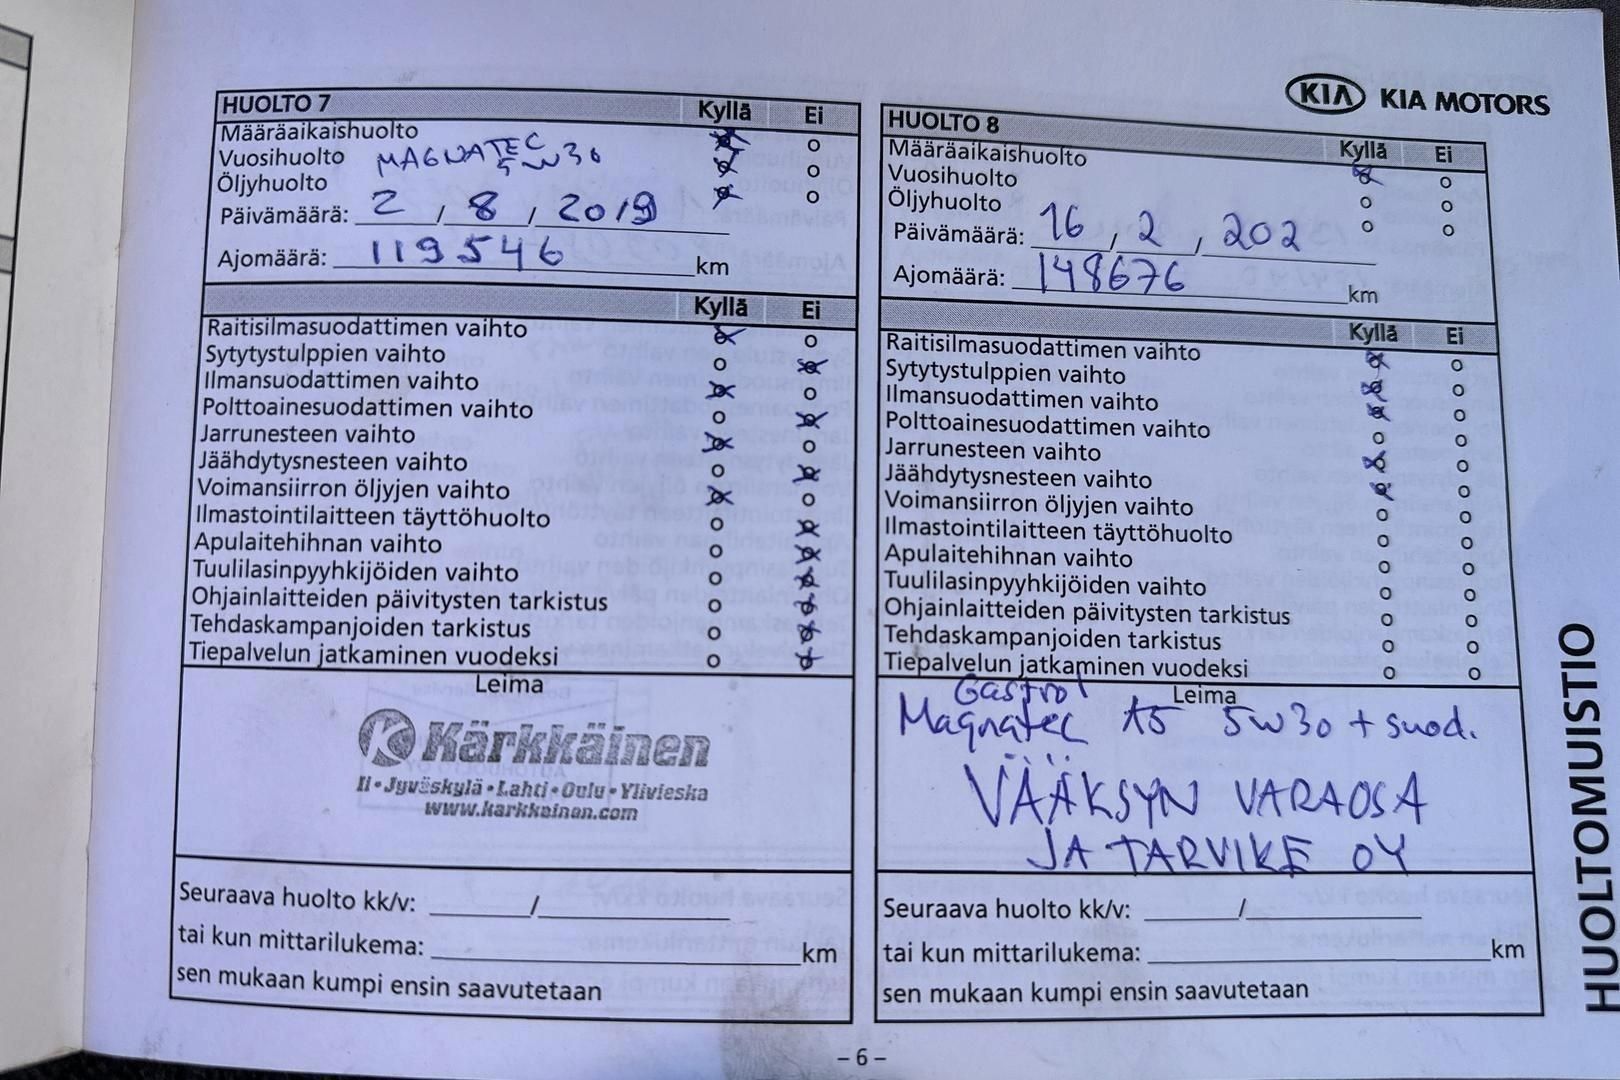 KIA KIA MOTORS
HUOLTO 7 Kyllä Ei
Määräaikaishuolto
Vuosihuolto MAGNATEC
Öljyhuolto 5W30
Päivämäärä: 2 / 8 / 2019
Ajomäärä: 119546 km
Kyllä Ei
Raitisilmasuodattimen vaihto
Sytytystulppien vaihto
Ilmansuodattimen vaihto
Polttoainesuodattimen vaihto
Jarrunesteen vaihto
Jäähdytysnesteen vaihto
Voimansiirron öljyjen vaihto
Ilmastointilaitteen täyttöhuolto
Apulaitehihnan vaihto
Tuulilasinpyyhkijöiden vaihto
Ohjainlaitteiden päivitysten tarkistus
Tehdaskampanjoiden tarkistus
Tiepalvelun jatkaminen vuodeksi
Leima
K Kärkkäinen
Ii • Jyväskylä • Lahti • Oulu • Ylivieska
www.karkkainen.com
Seuraava huolto kk/v: /
tai kun mittarilukema: km
sen mukaan kumpi ensin saavutetaan
HUOLTO 8 Kyllä Ei
Määräaikaishuolto
Vuosihuolto
Öljyhuolto
Päivämäärä: 16 / 2 / 202
Ajomäärä: 148676 km
Kyllä Ei
Raitisilmasuodattimen vaihto
Sytytystulppien vaihto
Ilmansuodattimen vaihto
Polttoainesuodattimen vaihto
Jarrunesteen vaihto
Jäähdytysnesteen vaihto
Voimansiirron öljyjen vaihto
Ilmastointilaitteen täyttöhuolto
Apulaitehihnan vaihto
Tuulilasinpyyhkijöiden vaihto
Ohjainlaitteiden päivitysten tarkistus
Tehdaskampanjoiden tarkistus
Tiepalvelun jatkaminen vuodeksi
Leima
Gastrol
Magnatec A5 5W30 + suod.
VÄÄKSYN VARAOSA
JA TARVIKE OY
Seuraava huolto kk/v: /
tai kun mittarilukema: km
sen mukaan kumpi ensin saavutetaan
HUOLTOMUISTIO
– 6 –